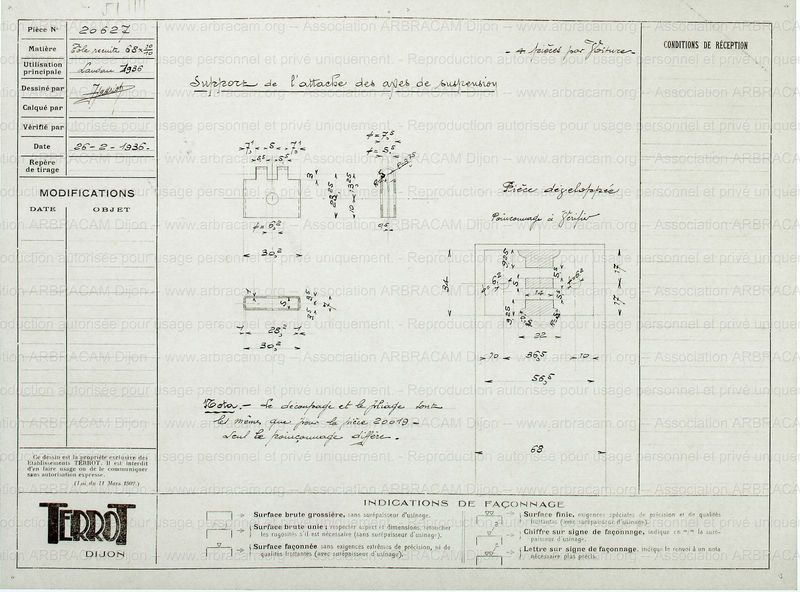 Pièce N° 20627
Matière Tôle recuite 68 × 20/10
Utilisation principale Landau 1936
Dessiné par
Calqué par
Vérifié par
Date 26-2-1936.
Repère de tirage
MODIFICATIONS
DATE OBJET
- 4 pièces par Voiture -
CONDITIONS DE RÉCEPTION
Support de l'attache des axes de suspension
Pièce développée
Poinçonnage à Vérifier
7,1 6 7,1
5,5 5,5
3
23,25
10 13,25
φ = 6,2
30,2
φ = 7,5
φ = 5,5
9,5
1
5
3,5 3,5
7
1 28,2 1
30,2
34
9,25
9,25
14
22
10 36,5 10
56,5
68
17
17
Nota. - Le découpage et le pliage sont
les mêmes que pour la pièce 20619 -
seul le poinçonnage diffère. -
Ce dessin est la propriété exclusive des
Etablissements TERROT. Il est interdit
d'en faire usage ou de le communiquer
sans autorisation expresse.
(Loi du 11 Mars 1902.)
TERROT
DIJON
INDICATIONS DE FAÇONNAGE
Surface brute grossière, sans surépaisseur d'usinage.
Surface brute unie; respecter aspect et dimensions, retoucher
les rugosités s'il est nécessaire (sans surépaisseur d'usinage).
Surface façonnée sans exigences extrêmes de précision, ni de
qualités frottantes (avec surépaisseur d'usinage).
Surface finie, exigences spéciales de précision et de qualités
frottantes (avec surépaisseur d'usinage).
Chiffre sur signe de façonnage, indique en m/m la surépaisseur d'usinage.
Lettre sur signe de façonnage, indique le renvoi à un nota
nécessaire plus précis.
www.arbracam.org -- Association ARBRACAM Dijon -- Reproduction autorisée pour usage personnel et privé uniquement.